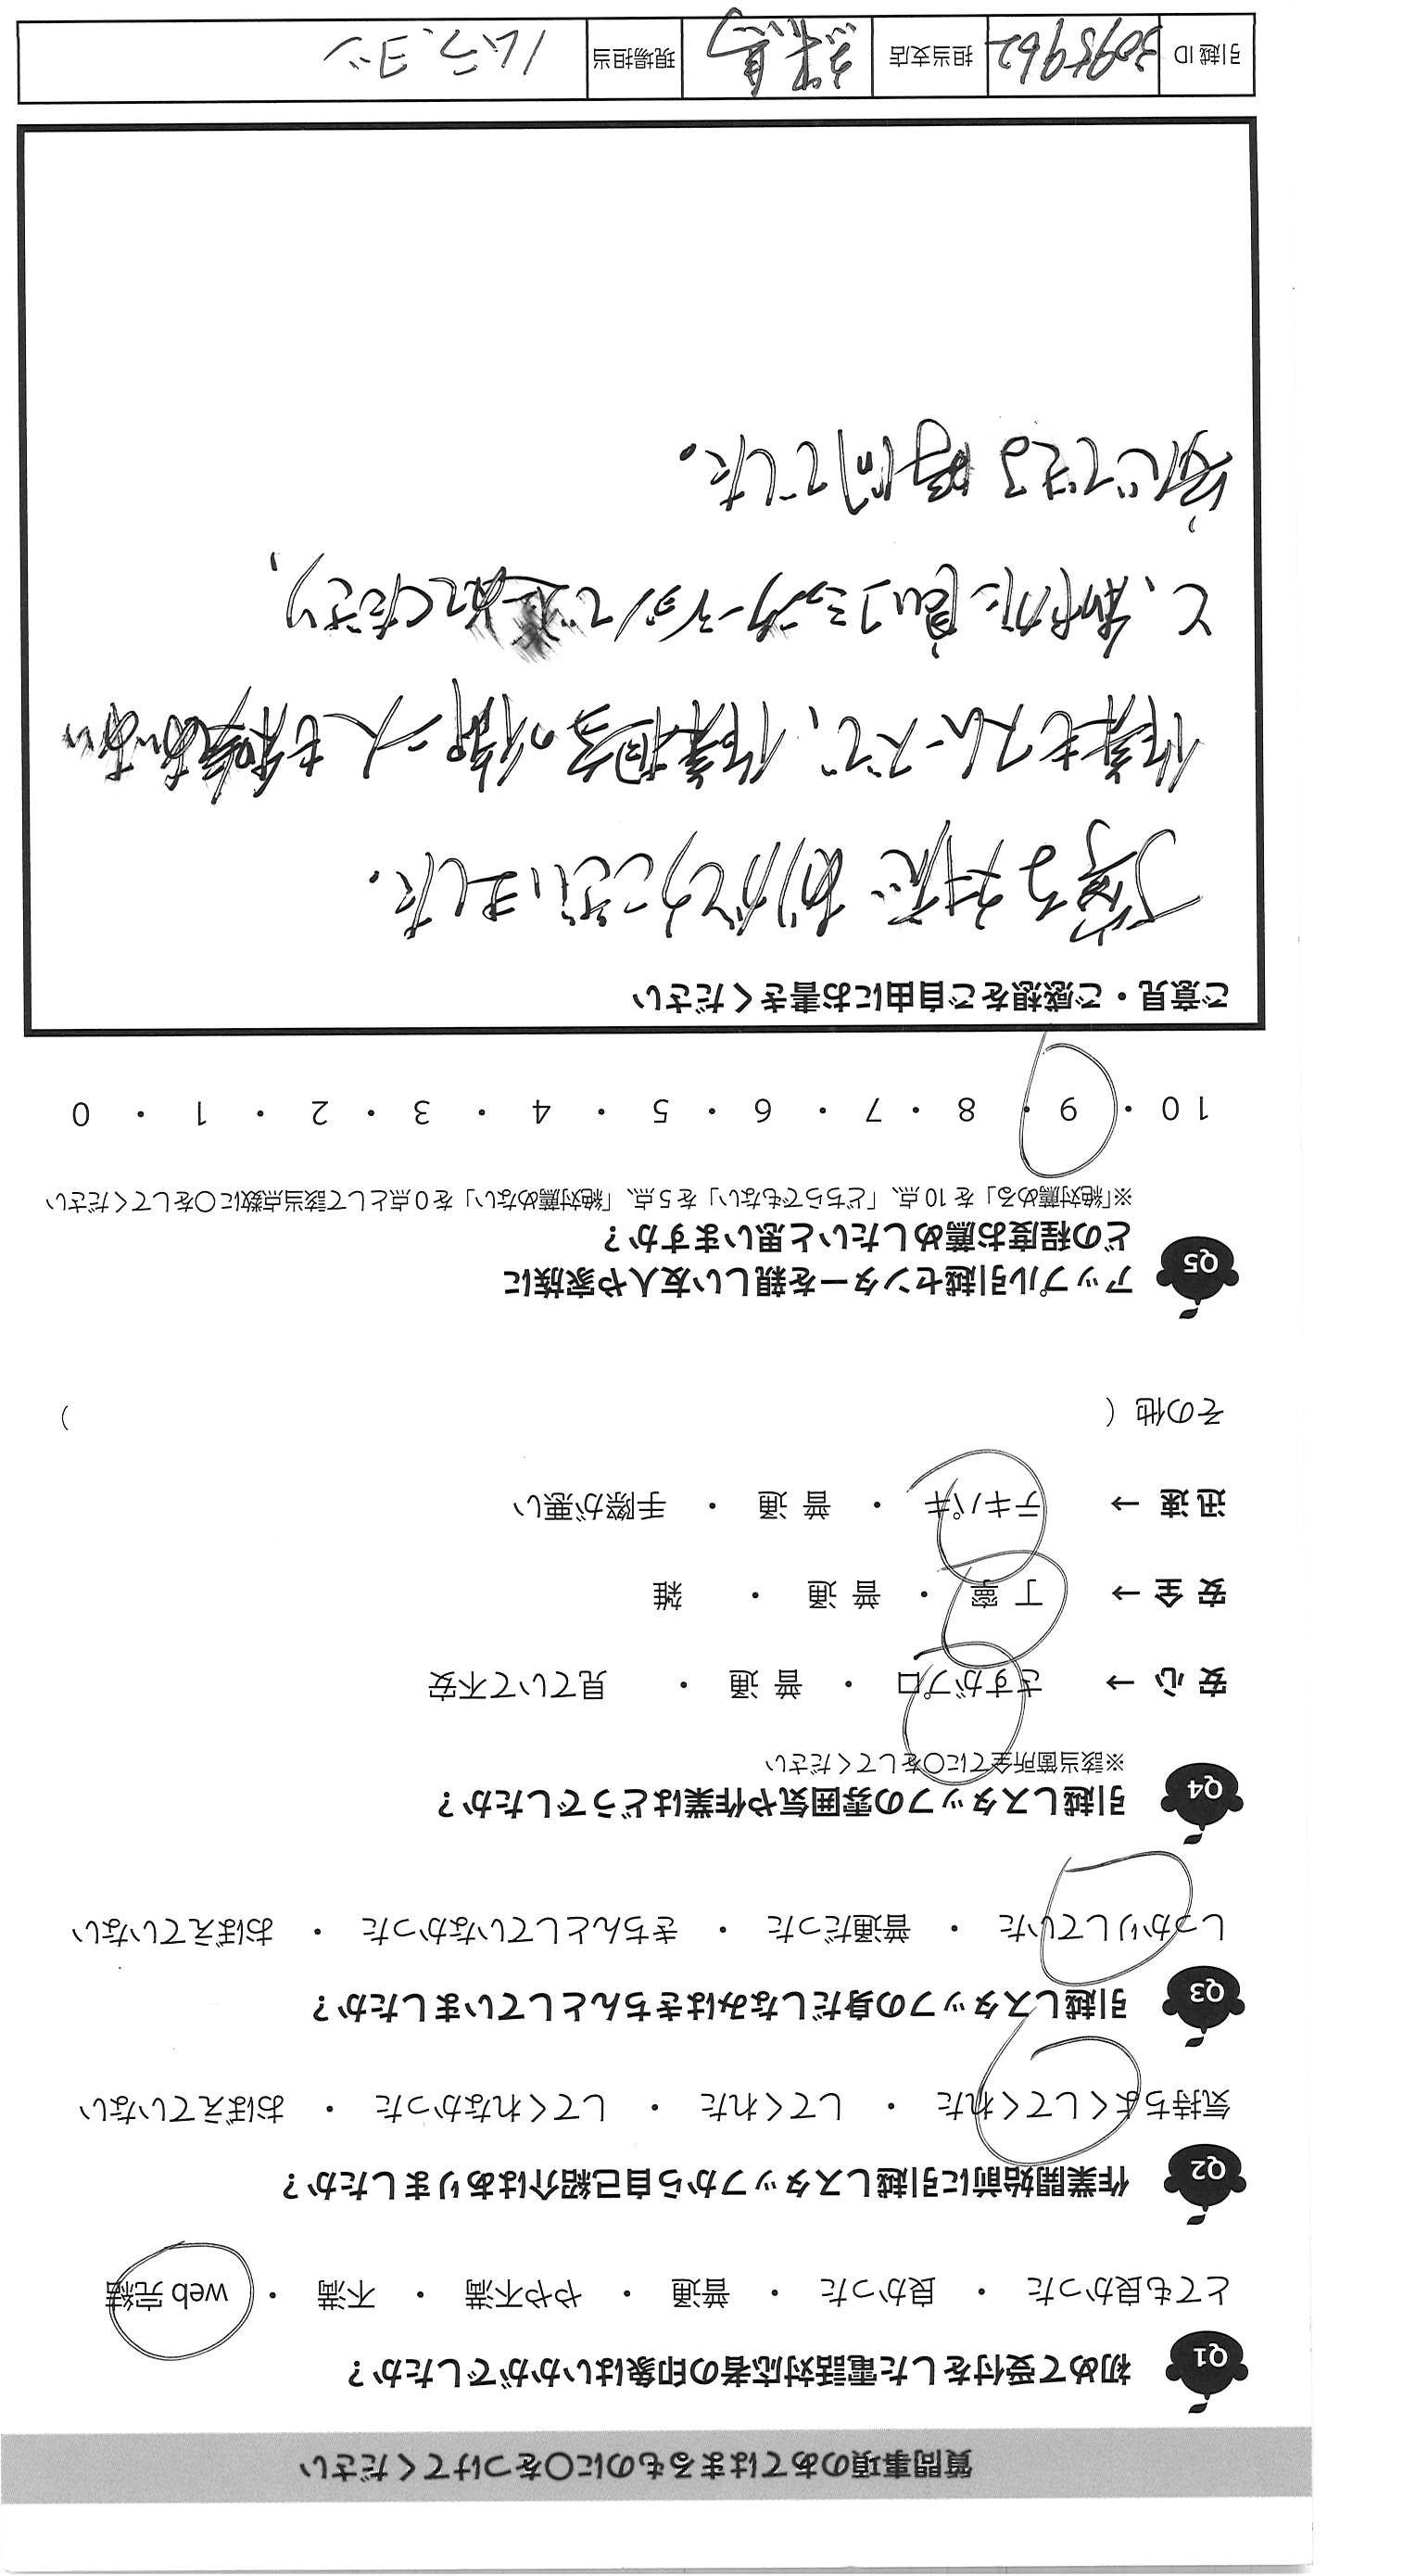 質問事項のあてはまるものに〇をつけてください
Q1 初めて受付をした電話対応者の印象はいかがでしたか？
とても良かった ・ 良かった ・ 普通 ・ やや不満 ・ 不満 ・ web 完結
Q2 作業開始前に引越しスタッフから自己紹介はありましたか？
気持ちよくしてくれた ・ してくれた ・ してくれなかった ・ おぼえていない
Q3 引越しスタッフの身だしなみはきちんとしていましたか？
しっかりしていた ・ 普通だった ・ きちんとしていなかった ・ おぼえていない
Q4 引越しスタッフの雰囲気や作業はどうでしたか？
※該当箇所全てに〇をしてください
安 心 → さすがプロ ・ 普 通 ・ 見ていて不安
安 全 → 丁 寧 ・ 普 通 ・ 雑
迅 速 → テキパキ ・ 普 通 ・ 手際が悪い
その他（ ）
Q5 アップル引越センターを親しい友人や家族に
どの程度お薦めしたいと思いますか？
※「絶対薦める」を 10 点、「どちらでもない」を 5 点、「絶対薦めない」を 0 点として該当点数に〇をしてください
10 ・ 9 ・ 8 ・ 7 ・ 6 ・ 5 ・ 4 ・ 3 ・ 2 ・ 1 ・ 0
ご意見・ご感想をご自由にお書きください
丁寧な対応ありがとうございました。
作業もスムーズで、作業担当の御二人も
と、良いコミュニケーションで進めてくださり、
安心できる時間でした。
引越 ID 3095962 担当支店 練馬 現場担当 ムラ、ヨシ